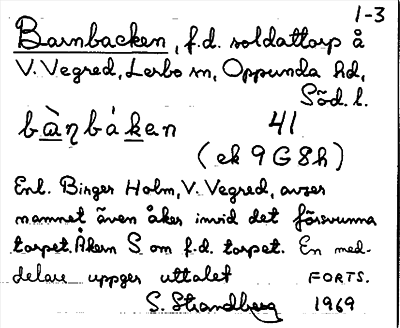 1-3
Barnbacken, f.d. soldattorp å
V. Vegred, Lerbo sn, Oppunda hd,
Söd. l.
bàṇbáken 41
(ek 9G8h)
Enl. Birger Holm, V. Vegred, avser
namnet även åker invid det försvunna
torpet. Åkern S om f.d. torpet. En med-
delare uppger uttalet FORTS.
S. Strandberg 1969